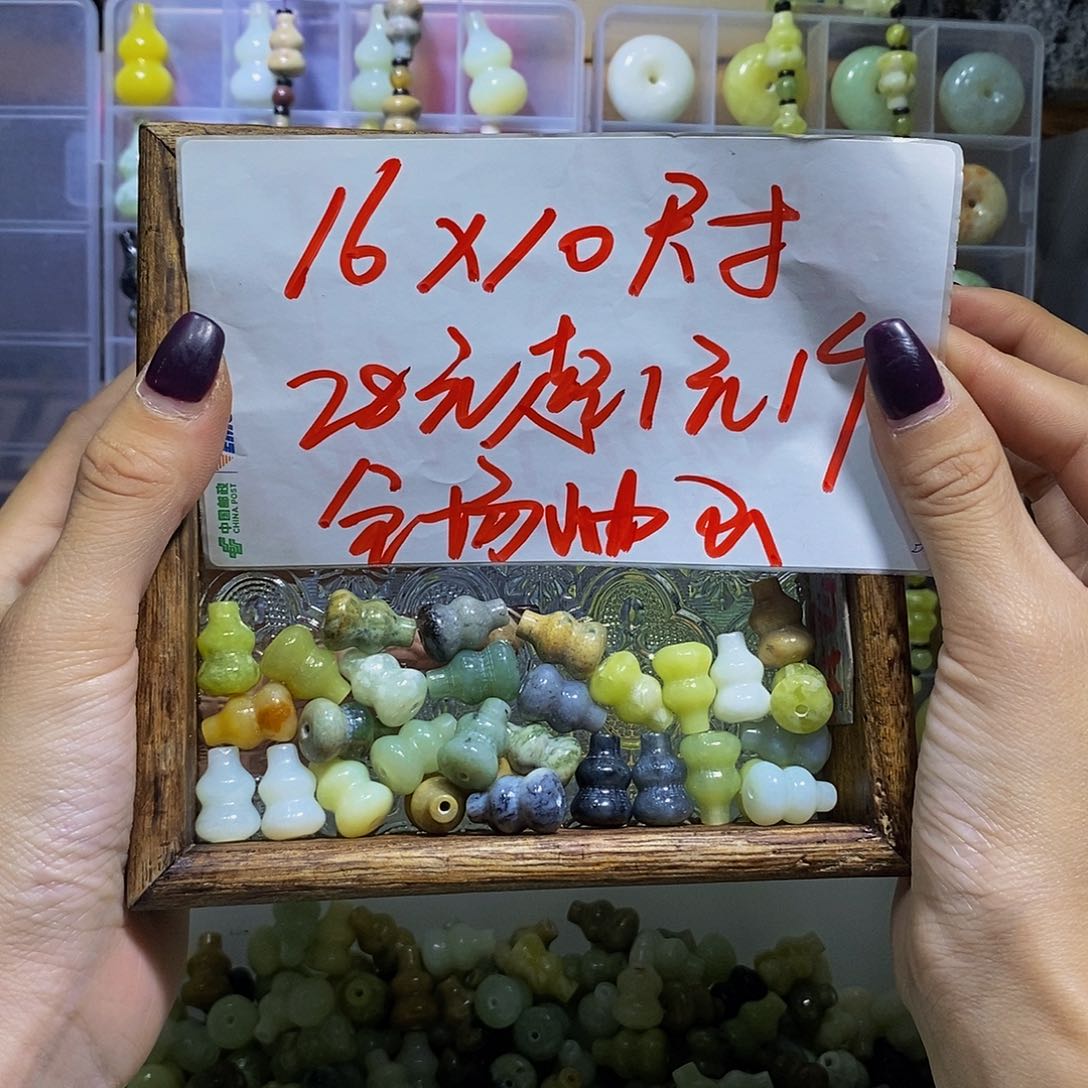 16×10尺寸
28元起1元1个
全场岫玉
中国邮政
CHINA POST